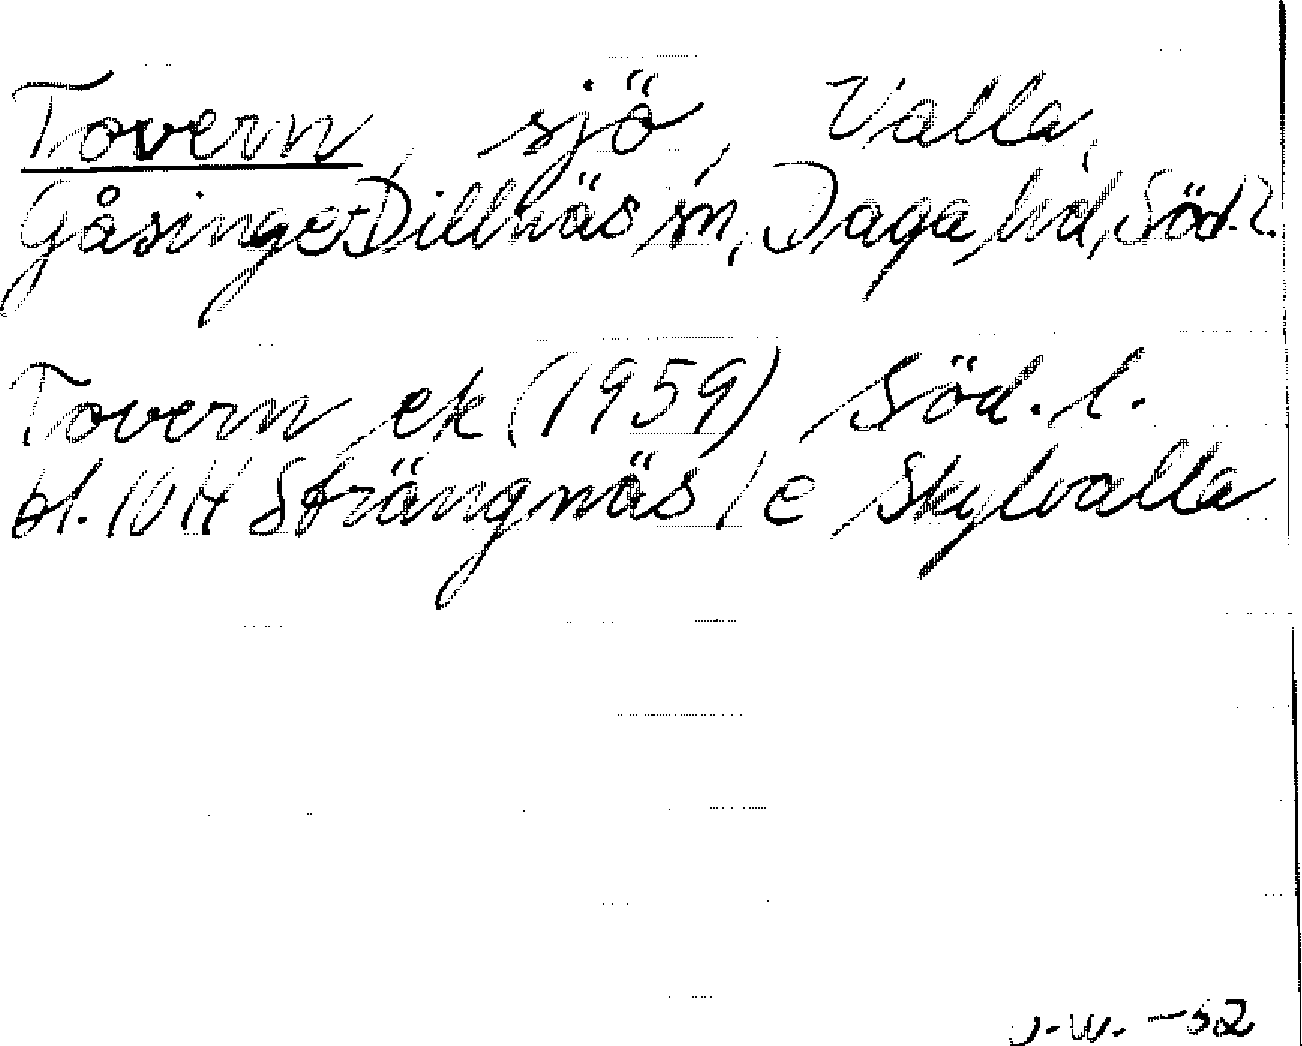 Tovern, sjö, Valla,
Gåsinge-Dillnäs sn, Daga hd, Söd. l.
Tovern ek (1959) Söd. l.
bl. 10 H Strängnäs / e Skylvalla
J.W. -52